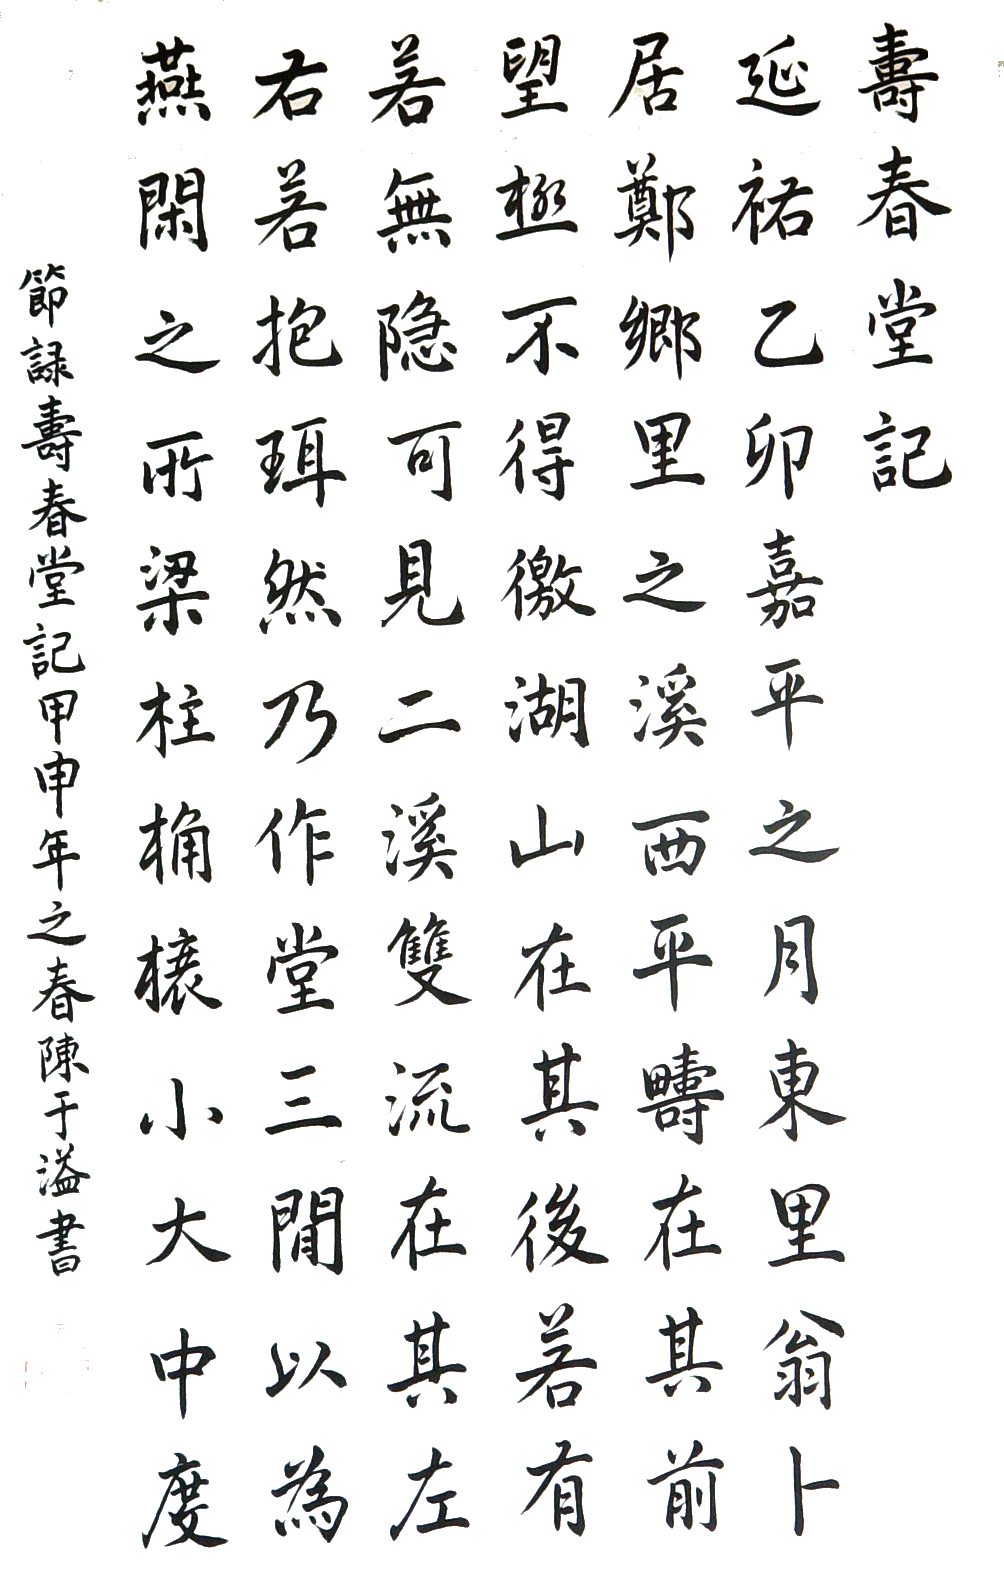 壽春堂記
延祐乙卯嘉平之月東里翁卜
居鄭鄉里之溪西平疇在其前
望極不得徼湖山在其後若有
若無隐可見二溪雙流在其左
右若抱珥然乃作堂三閒以為
燕閑之所梁柱桷榱小大中度
節録壽春堂記甲申年之春陳于溢書